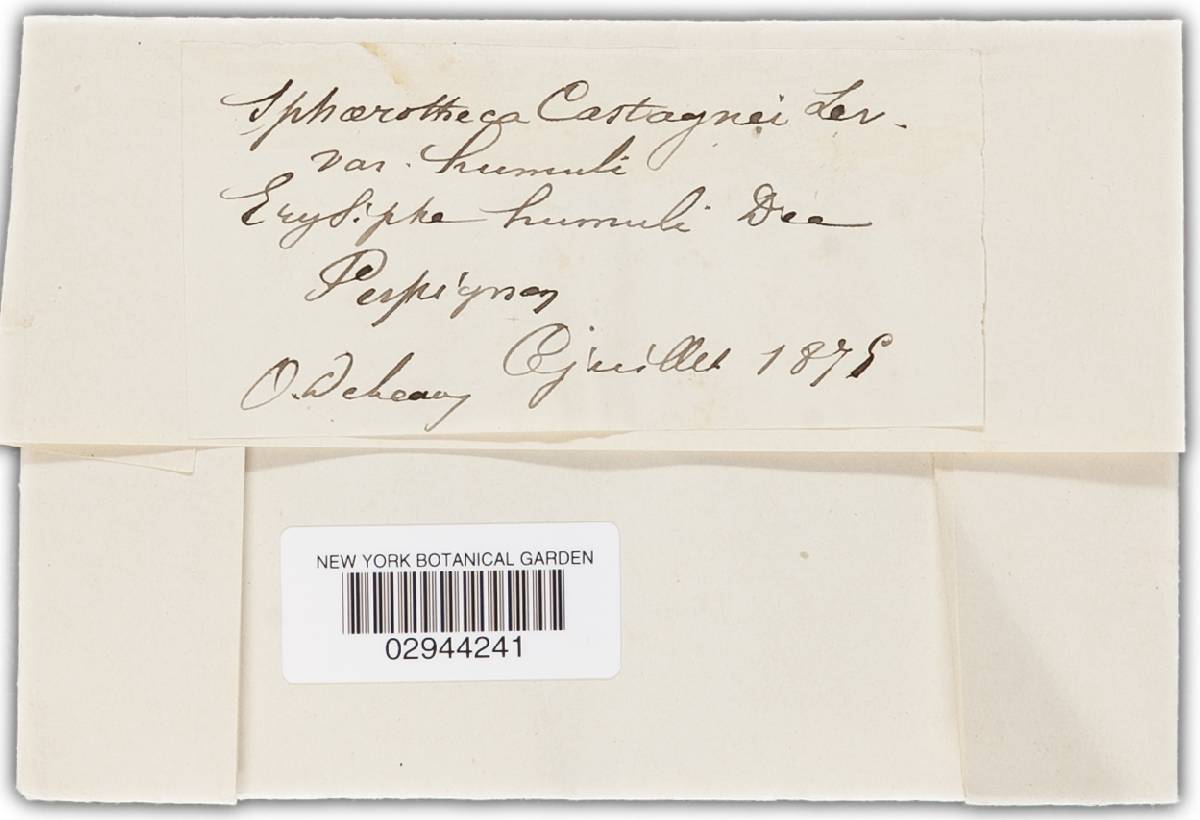 Sphærotheca Castagnei Lev.
var. humuli
Erysiphe humuli Dec
Perpignan
juillet 187
O. Debeaux
NEW YORK BOTANICAL GARDEN
02944241